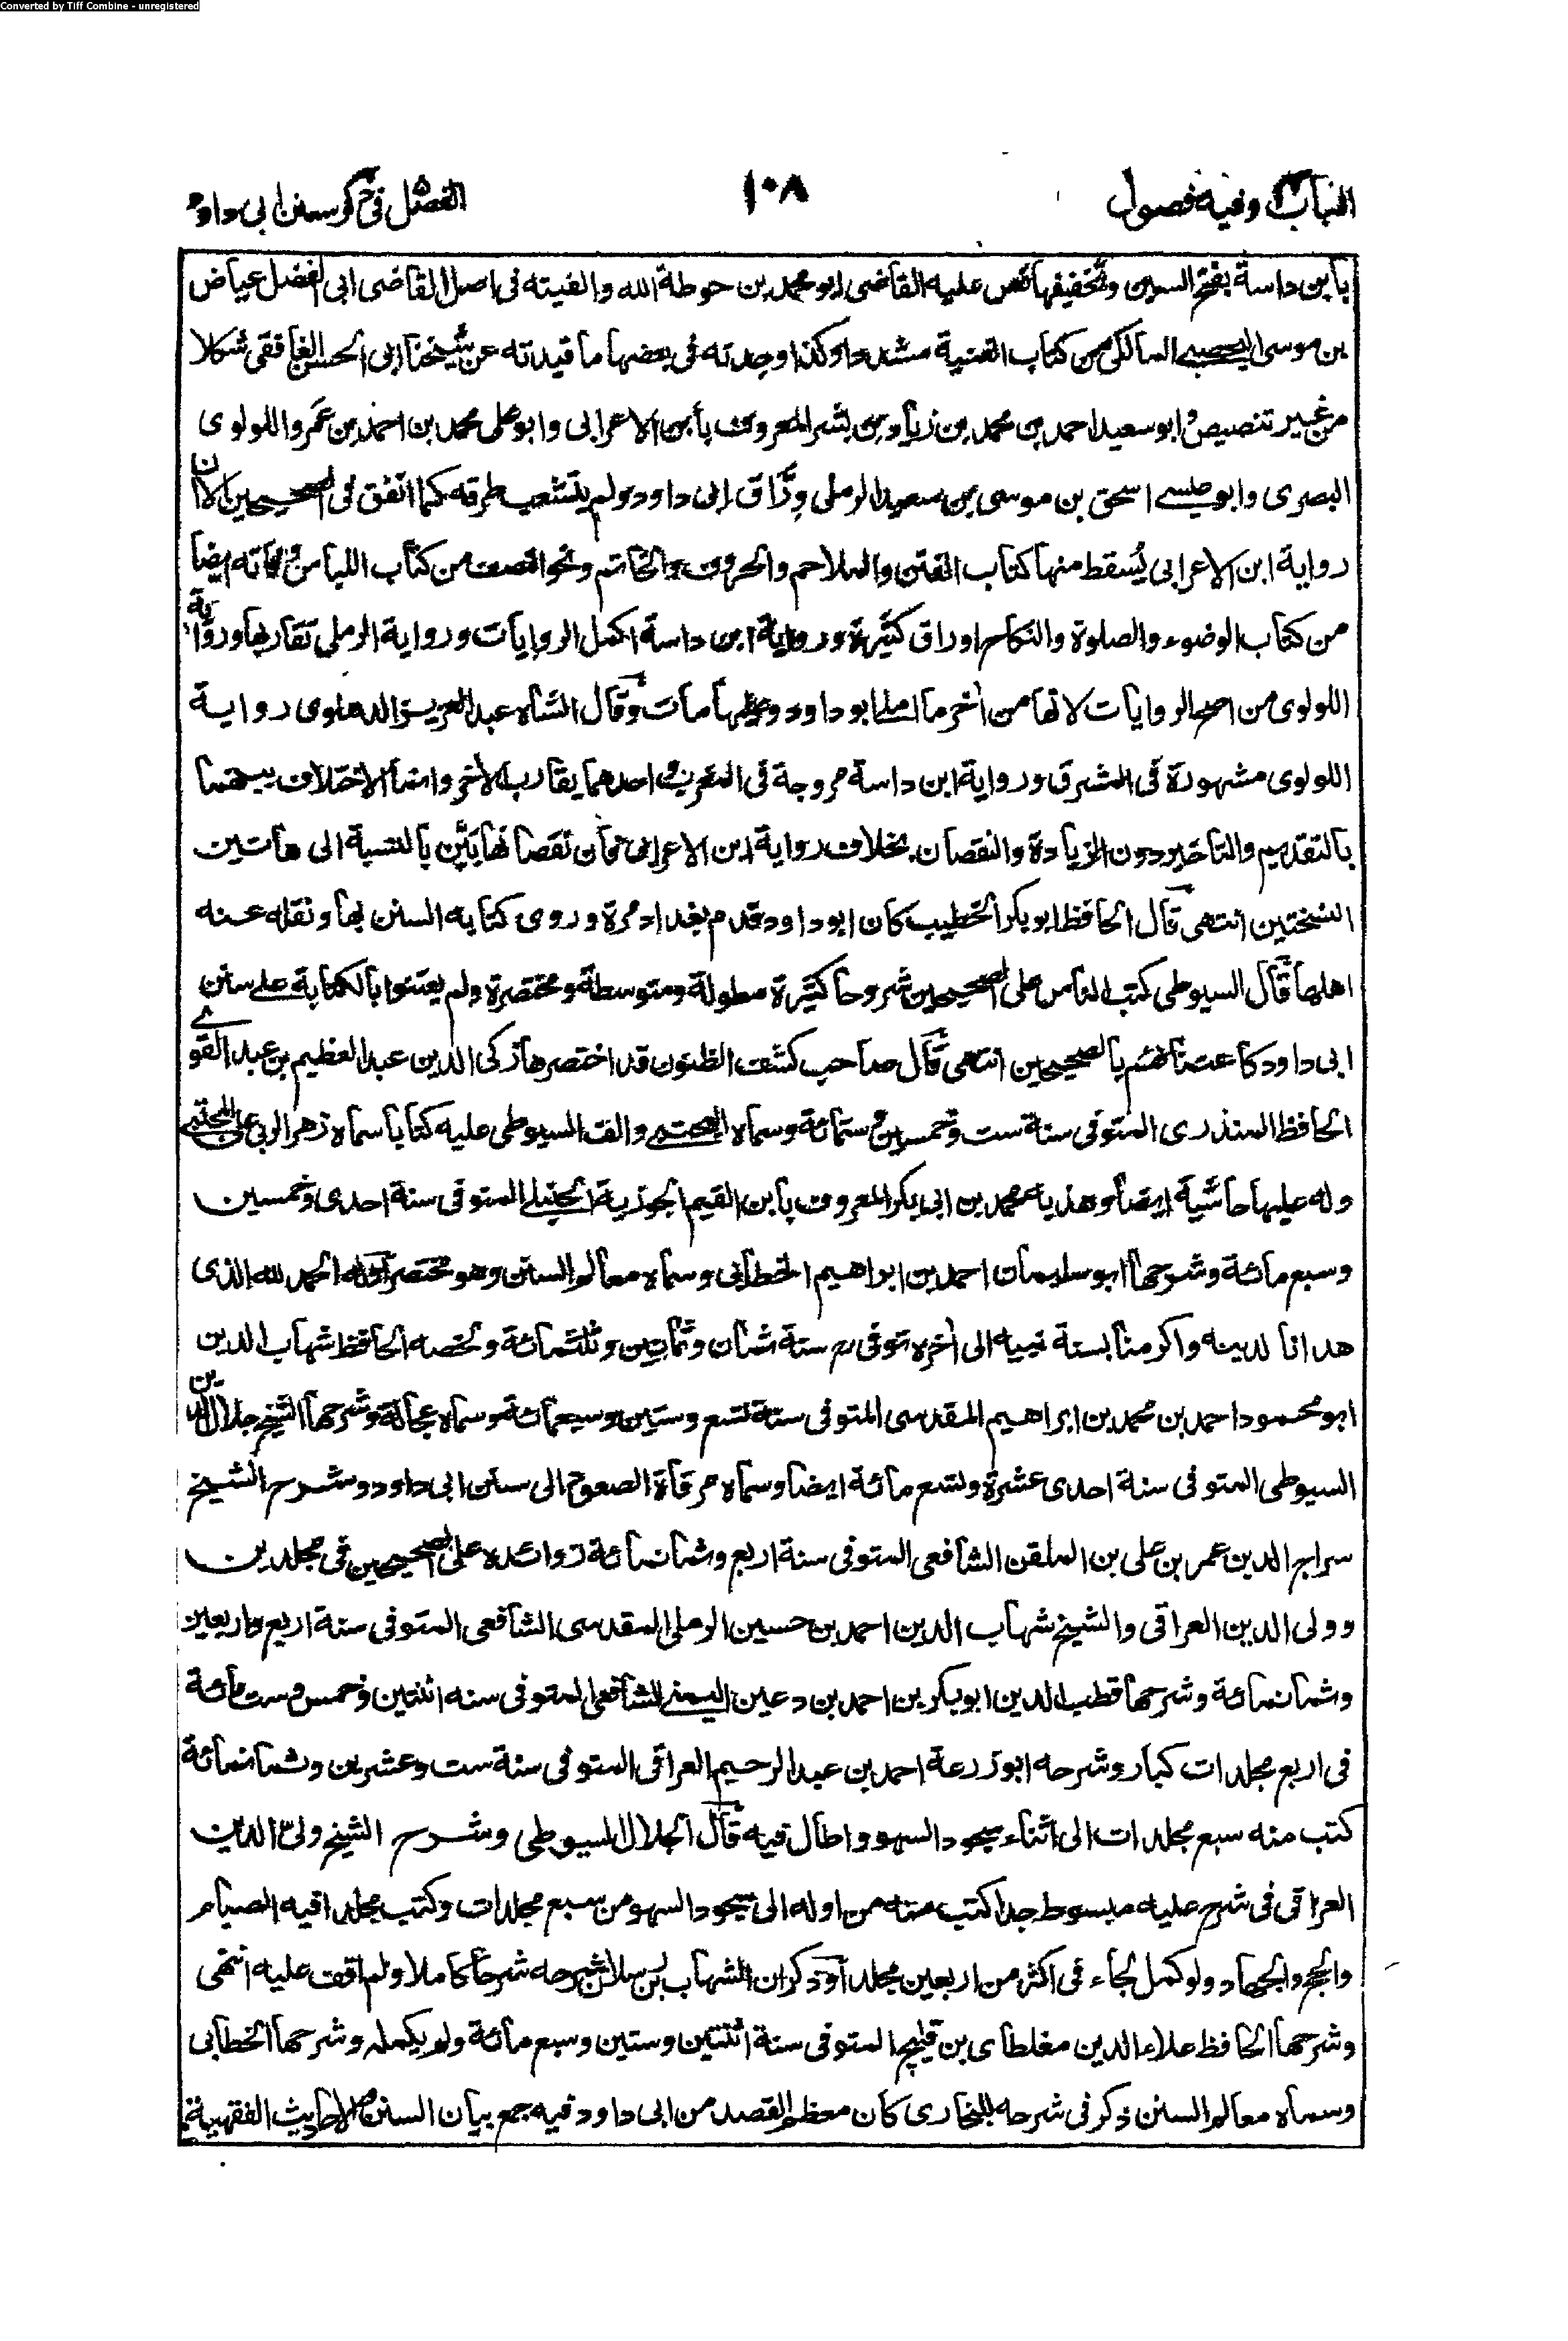 Converted by Tiff Combine - unregistered
الباب وفيه فصول ١٠٨ الفصل في ذكر سنن ابي داود
بابن داسة بفتح السين وتخفيفها نص عليه القاضي ابو محمد بن حوطة الله والفيته في اصل القاضي ابى الفضل عياض
بن موسى اليحصبي المالكي من كتاب الغنية مشددا وكذا وجدته في بعضها ما قيدته عن شيخنا ابى الحسن الغافقي شكلا
من غير تنصيص وابو سعيد احمد بن محمد بن زياد بن بشر المعروف بابن الاعرابى وابو على محمد بن احمد بن عمرو اللولوى
البصرى وابو عيسى اسحق بن موسى بن سعيد الرملى ورّاق ابى داود ولم يتشعب طرقه كما اتفق في الصحيحين الا ان
رواية ابن الاعرابى يسقط منها كتاب الفتن والملاحم والحروف والخاتم ونحو النصف من كتاب اللباس وفاته ايضا
من كتاب الوضوء والصلوة والنكاح اوراق كثيرة ورواية ابن داسة اكمل الروايات ورواية الرملى تقاربها ورواية
اللولوى من اصح الروايات لانها من اخر ما املى ابو داود وعليها مات وقال الشاه عبد العزيز الدهلوى رواية
اللولوى مشهورة في المشرق ورواية ابن داسة مروجة في المغرب واحدهما يقارب الاخر وانما الاختلاف بينهما
بالتقديم والتاخير دون الزيادة والنقصان بخلاف رواية ابن الاعرابى فان نقصانها بيّن بالنسبة الى هاتين
النسختين انتهى قال الحافظ ابو بكر الخطيب كان ابو داود قدم بغداد مرة وروى كتابه السنن بها ونقله عنه
اهلها قال السيوطى كتب الناس على الصحيحين شروحا كثيرة مطولة ومتوسطة ومختصرة ولم يعتنوا بالكتابة على سنن
ابى داود كاعتنائهم بالصحيحين انتهى قال صاحب كشف الظنون قد اختصرها زكى الدين عبد العظيم بن عبد القوى
الحافظ المنذرى المتوفى سنة ست وخمسين وستمائة وسماه المجتبى والف السيوطى عليه كتابا سماه زهر الربى على المجتبى
وله عليها حاشية ايضا وهذبه محمد بن ابى بكر المعروف بابن القيم الجوزية الحنبلى المتوفى سنة احدى وخمسين
وسبع مائة وشرحها ابو سليمان احمد بن ابراهيم الخطابى وسماه معالم السنن وهو مختصر اوله الحمد لله الذى
هدانا لدينه واكرمنا بسنة نبيه الى اخره توفى رح سنة ثمان وثمانين وثلثمائة ولخصه الحافظ شهاب الدين
ابو محمود احمد بن محمد بن ابراهيم المقدسى المتوفى سنة تسع وستين وسبعمائة وسماه عجالة وشرحها الشيخ جلال الدين
السيوطى المتوفى سنة احدى عشرة وتسع مائة ايضا وسماه مرقاة الصعود الى سنن ابى داود وشرح الشيخ
سراج الدين عمر بن على بن الملقن الشافعى المتوفى سنة اربع وثمانمائة زوائده على الصحيحين في مجلدين
وولى الدين العراقى والشيخ شهاب الدين احمد بن حسين الرملى المقدسى الشافعى المتوفى سنة اربع واربعين
وثمانمائة وشرحها قطب الدين ابو بكر بن احمد بن دعين اليمنى الشافعى المتوفى سنه اثنتين وخمس وست مائة
في اربع مجلدات كبار وشرحه ابو زرعة احمد بن عبد الرحيم العراقى المتوفى سنة ست وعشرين وثمانمائة
كتب منه سبع مجلدات الى اثناء سجود السهو واطال فيه قال الجلال السيوطى وشرح الشيخ ولىّ الدين
العراقى في شرح عليه مبسوط جدا كتب منه من اوله الى سجود السهو من سبع مجلدات وكتب مجلدا فيه الصيام
والحج والجهاد ولو كمل لجاء في اكثر من اربعين مجلدا وذكر ان الشهاب بن رسلان شرحه شرحا كاملا ولم اقف عليه انتهى
وشرحها الحافظ علاء الدين مغلطاى بن قليج المتوفى سنة اثنتين وستين وسبع مائة ولم يكمله وشرحها الخطابى
وسماه معالم السنن ذكر في شرحه للبخارى كان معظم القصد من ابى داود فيه جمع بيان السنن والاحاديث الفقهية